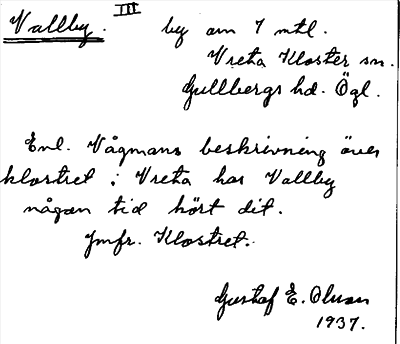 Vallby. III by om 7 mtl.
Vreta Kloster sn.
Gullbergs hd. Ögl.
Enl. Vågmans beskrivning över
klostret i Vreta har Vallby
någon tid hört dit.
Jmfr. Klostret.
Gustaf E. Olsson
1937.